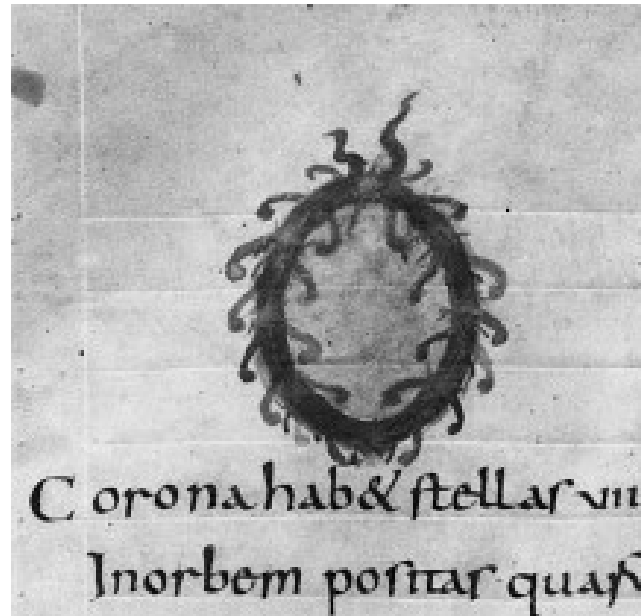 Corona hab& stellas VII
In orbem positas quas